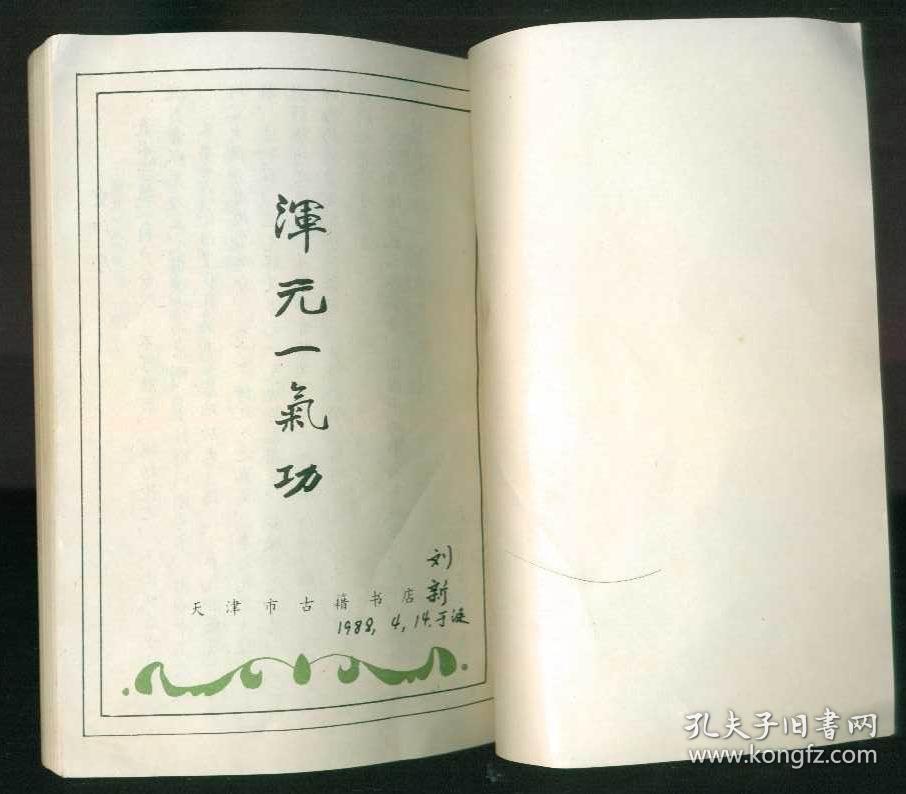 渾元一氣功
刘新
天津市古籍书店
1988,4,14.于
孔夫子旧书网
www.kongfz.com